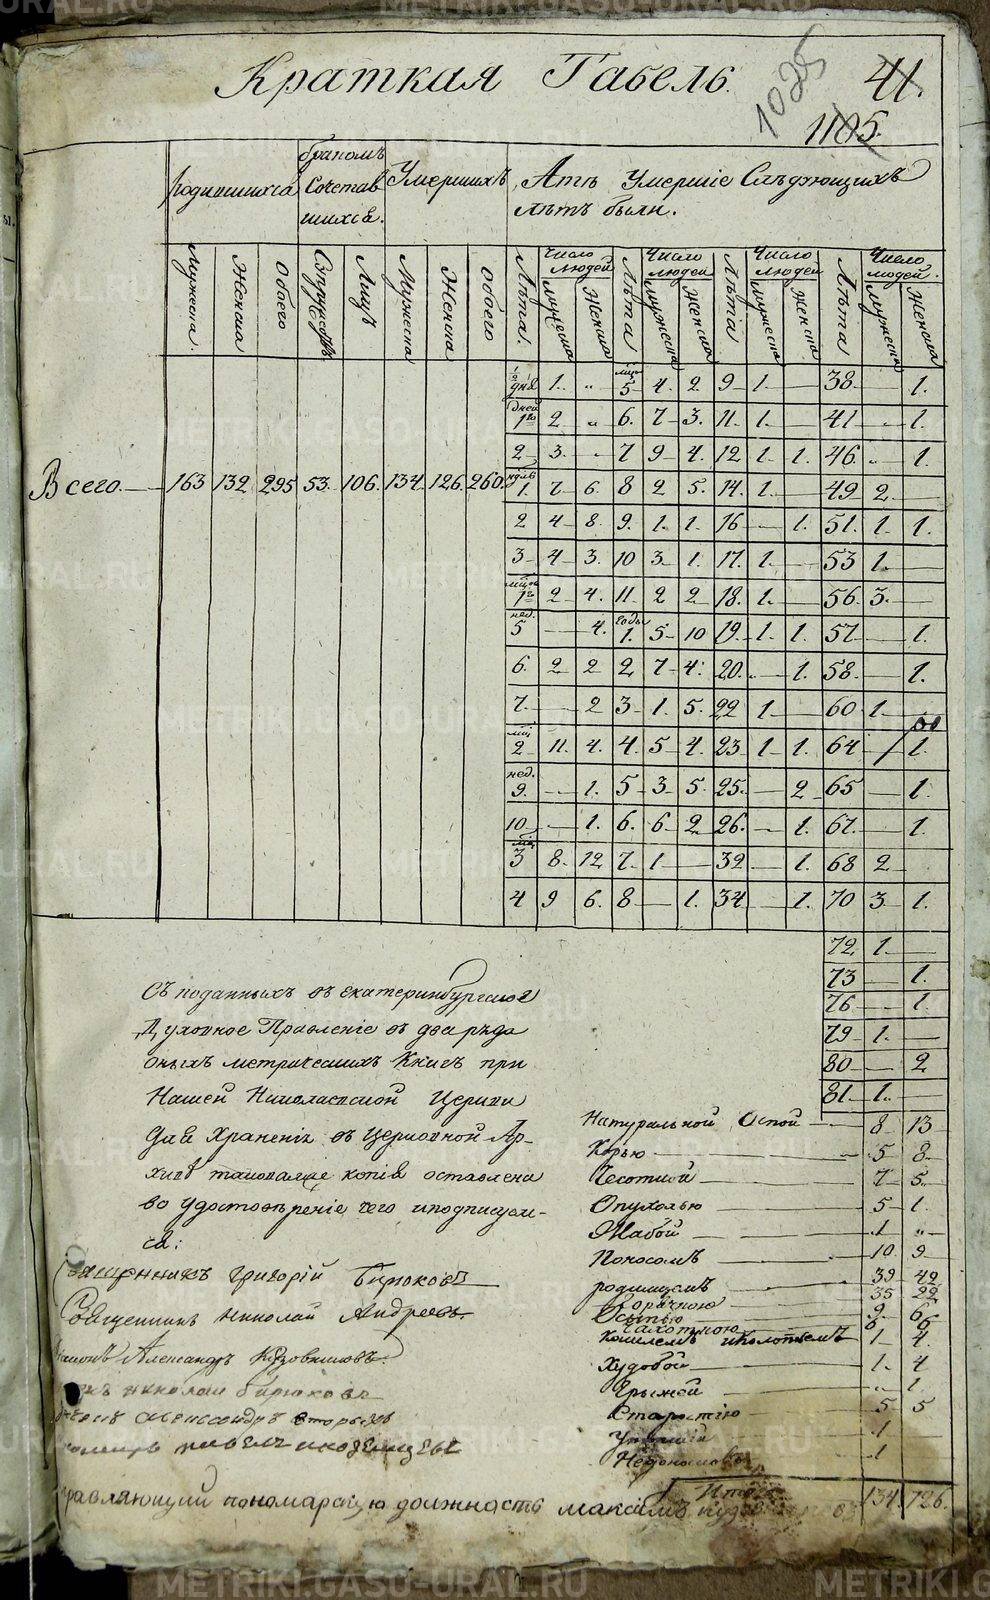 Краткая Табель.
41.
1025
1105.
родившихся
браком Сочетав шихся.
Умершихъ
А тѣ Умершіе Слѣдующихъ
лѣтъ были.
Мужеска Женска Обоего Супружествъ Лицъ Мужеска Женска Обоего Лѣта. Число людей мужеска Женска Лѣта Число людей мужеска Женска Лѣта Число людей мужеска женска Лѣта Число людей. мужеска Женска
1/2 дня 1. „ мцов 5 4. 2 9 1. — 38. — 1.
дней 1го 2 „ 6. 7 3. 11. 1. — 41 — 1.
2 3. „ 7 9 4. 12 1. 1. 46. „ 1.
Всего. — 163 132 295 53. 106. 134. 126. 260.
ндль 1. 7 6. 8 2 5. 14. 1. — 49 2. —
2 4 8. 9. 1. 1. 16 — 1. 51. 1. 1.
3 4 3. 10 3. 1. 17. 1. — 53 1. —
1го 2 4. 11. 2 2 18. 1. — 56. 3. —
нед. 5 — 4. годы 1. 5 10 19. 1. 1. 57. — 1.
6. 2 2 2 7 4. 20. — 1. 58. — 1.
7. — 2 3 1. 5. 22 1 — 60 1. —
мц 2 11. 4. 4. 5 4. 23 1 1. 64 — 1.
нед. 9. — 1. 5 3 5. 25. — 2 65 — 1.
10 — 1. 6. 6 2 26. — 1. 67. — 1.
мц 3 8. 12 7. 1 — 32 — 1. 68 2 —
4 9 6. 8 — 1. 34 — 1. 70 3. 1.
72 1. —
73 — 1.
76 — 1.
79 1. —
80 — 2
81 1. —
Съ поданныхъ въ екатеринбургское
Духовное Правленіе въ два ряда
оныхъ метрическихъ Книгъ при
Нашей Николаевской Церкви
для Храненія въ церковной Ар-
хивѣ таковаяже копія оставлена
во удостовѣреніе чего и подписуем-
ся:
Священникъ Григорій Бирюковъ
Священникъ Николай Андреевъ
Александръ
николай бирюковъ
александръ вторыхъ
павелъ иноземцевъ
правляющій пономарскую должность максимъ
Натуральной Оспой — 8 13
Корью — 5 8
Чесоткой — 7 5
Опухолью — 5 1.
Жабой — 1 „
Поносомъ — 10 9
родимцемъ — 39 42
Горячкою — 35 22
Осыпью — 9 6
Чахоткою — 6 6
Кашлемъ и колотьемъ 1 4.
Худобой — 1. 4
Грыжей „ 1
Старостію 5 5
1
Недоноскомъ 1
Итого 134. 126.